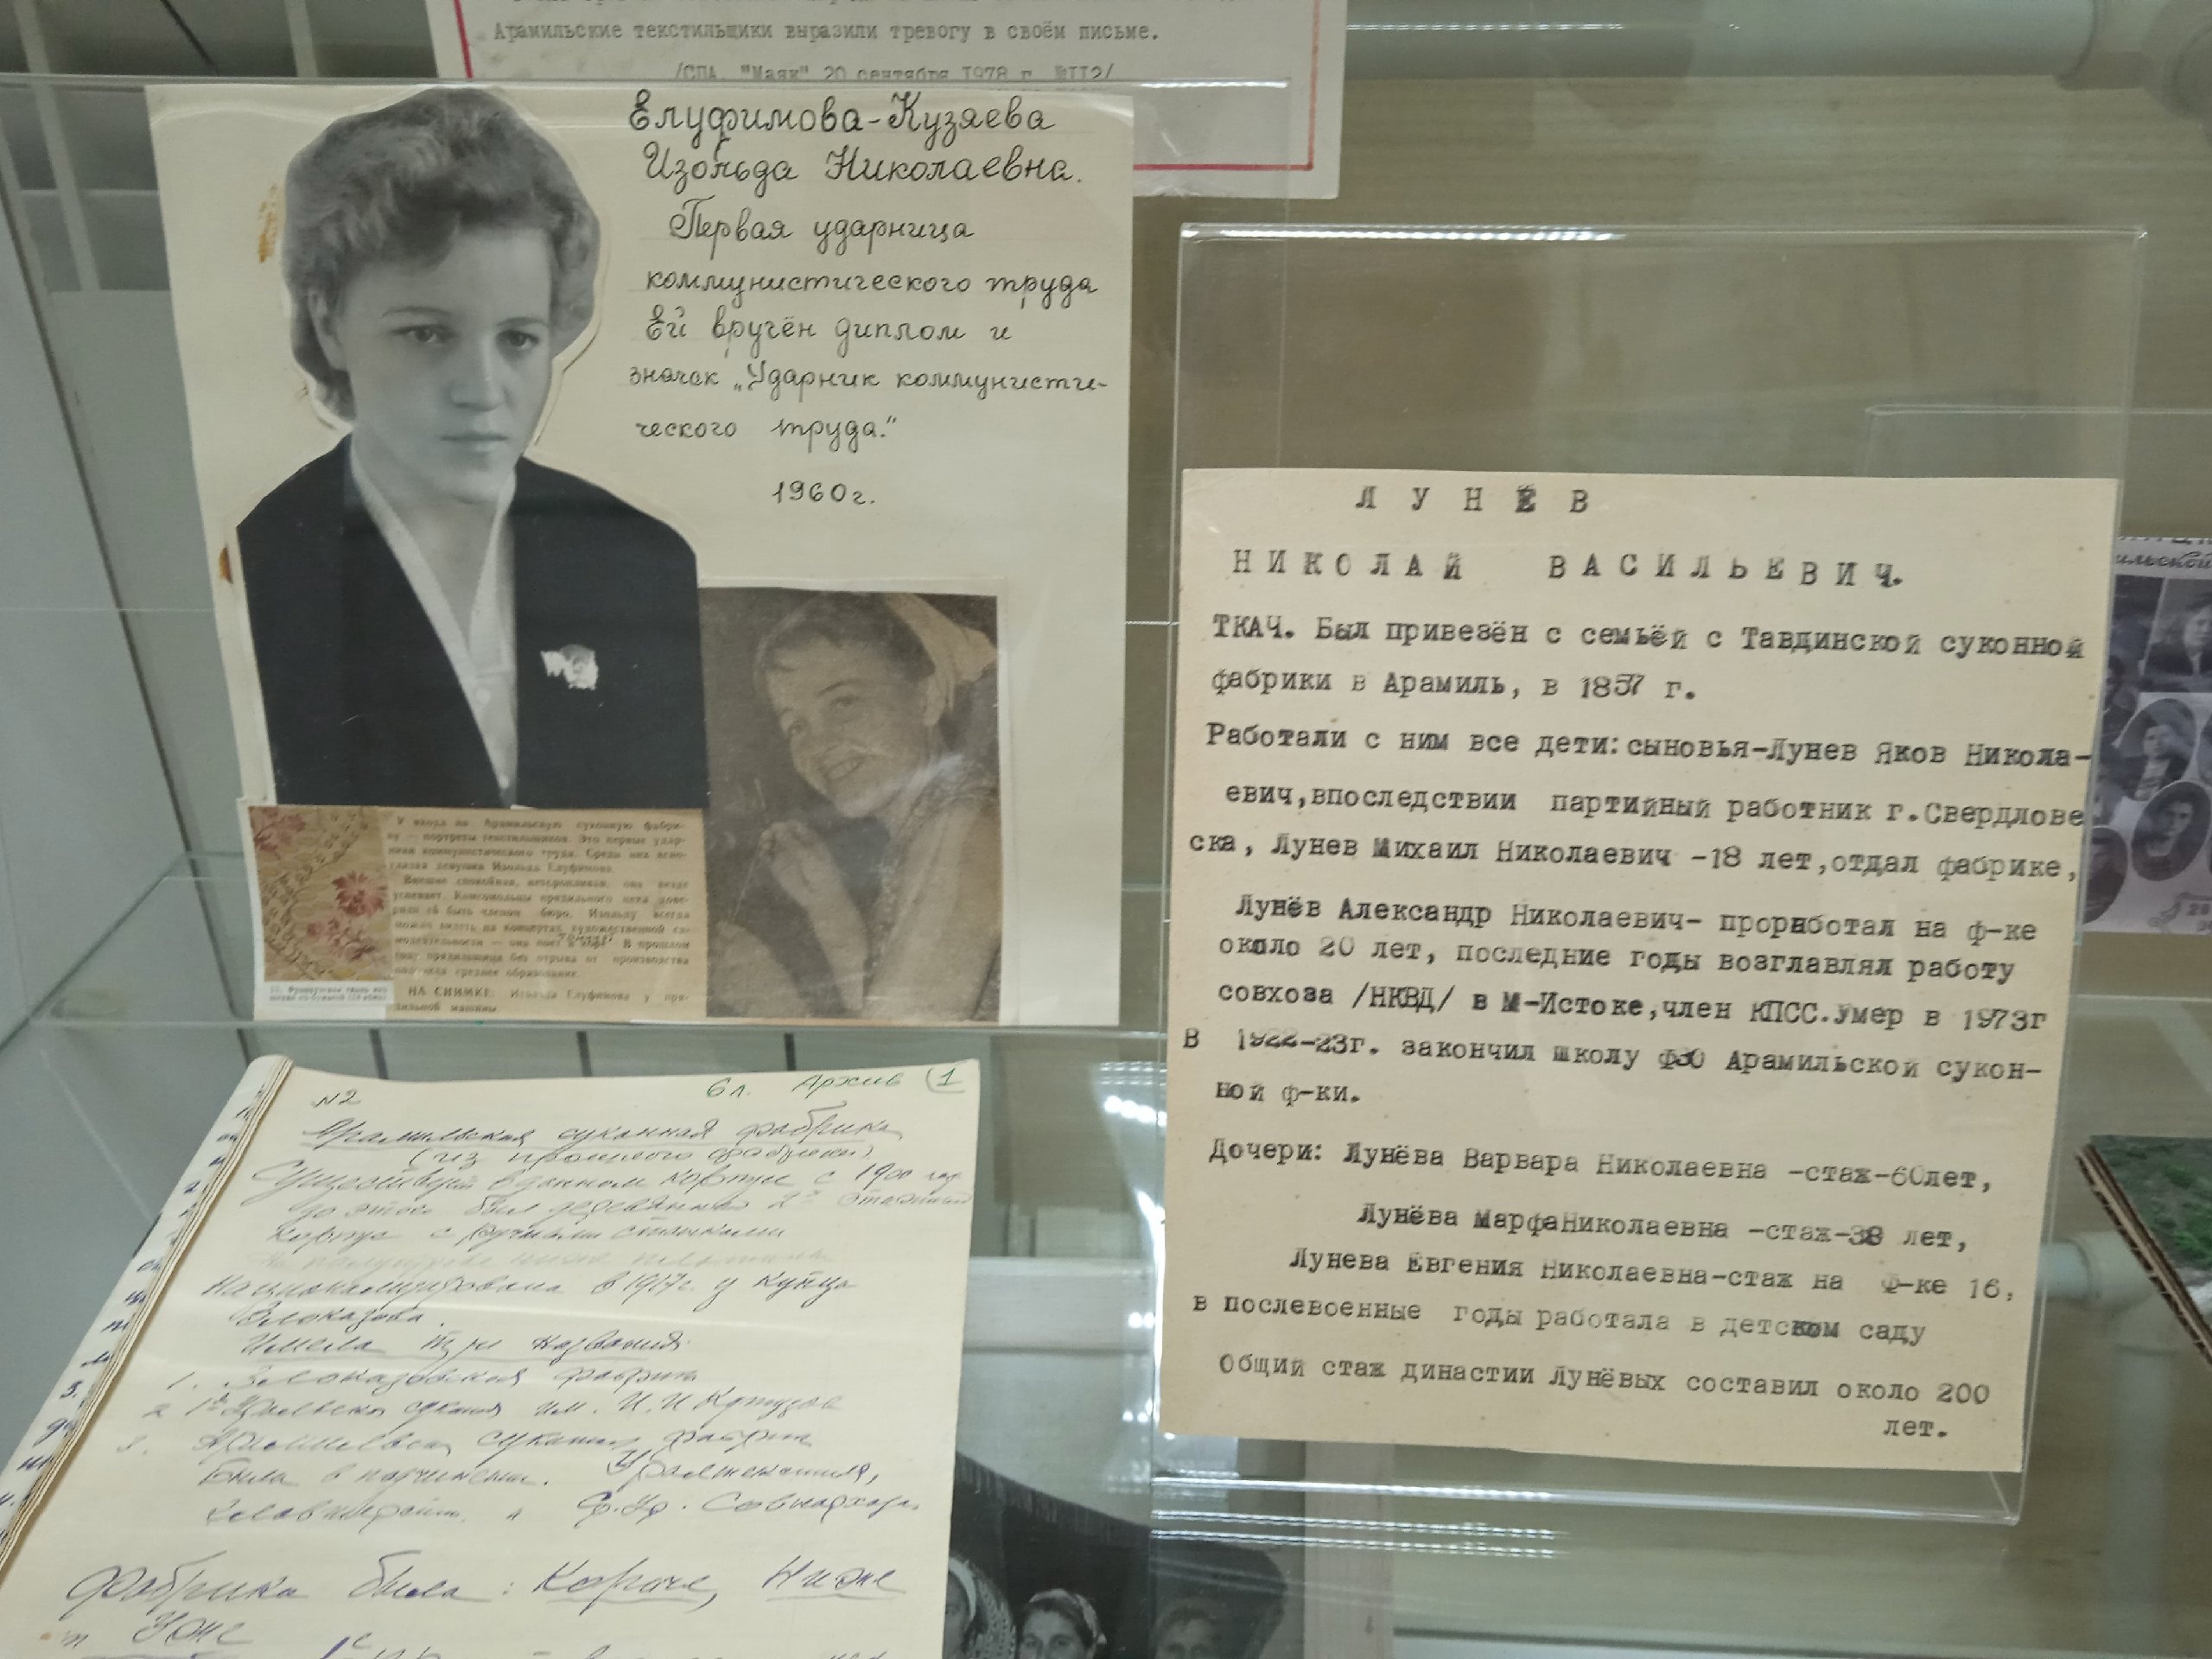 Арамильские текстильщики выразили тревогу в своём письме.
/СПА. "Маяк" 20 сентября 1978 г. №112/
Елуфимова-Кузяева
Изольда Николаевна.
Первая ударница
коммунистического труда
Ей вручён диплом и
значок „Ударник коммунисти-
ческого труда."
1960г.
У входа на Арамильскую суконную фабри-
ку — портреты текстильщиков. Это первые удар-
ники коммунистического труда. Среди них
девушка Изольда Елуфимова.
Внешне спокойная, неторопливая, она везде
успевает. Комсомольцы прядильного цеха
быть членом бюро. Изольду всегда
можно видеть на концертах художественной са-
модеятельности — она поет в хоре. В прошлом
году прядильщица без отрыва от производства
получила среднее образование.
НА СНИМКЕ: Изольда Елуфимова у пря-
дильной машины.
ЛУНЁВ
НИКОЛАЙ ВАСИЛЬЕВИЧ.
ТКАЧ. Был привезён с семьёй с Тавдинской суконной
фабрики в Арамиль, в 1857 г.
Работали с ним все дети: сыновья-Лунев Яков Никола-
евич,впоследствии партийный работник г.Свердлове
ска, Лунев Михаил Николаевич -18 лет,отдал фабрике,
Лунёв Александр Николаевич- проработал на ф-ке
около 20 лет, последние годы возглавлял работу
совхоза /НКВД/ в М-Истоке,член КПСС.Умер в 1973г
В 1922-23г. закончил школу ФЗО Арамильской сукон-
ной ф-ки.
Дочери: Лунёва Варвара Николаевна -стаж-60лет,
Лунёва МарфаНиколаевна -стаж-38 лет,
Лунева Евгения Николаевна-стаж на ф-ке 16,
в послевоенные годы работала в детском саду
Общий стаж династии Лунёвых составил около 200
лет.
6л. Архив 1
№2
Арамильская суконная фабрика
(из прошлого фабрики)
Существует в данном корпусе с 1900 года
до этого был деревянный 2х этажный
корпус с ручными станками
Национализирована в 1917г. у купца
Злоказова.
Имела три названия:
1. Злоказовская фабрика
2 1я Уральская суконная им.
3. Арамильская суконная фабрика
Была в подчинении.
Совнархоза.
Фабрика была: Короче, Ниже
и Уже